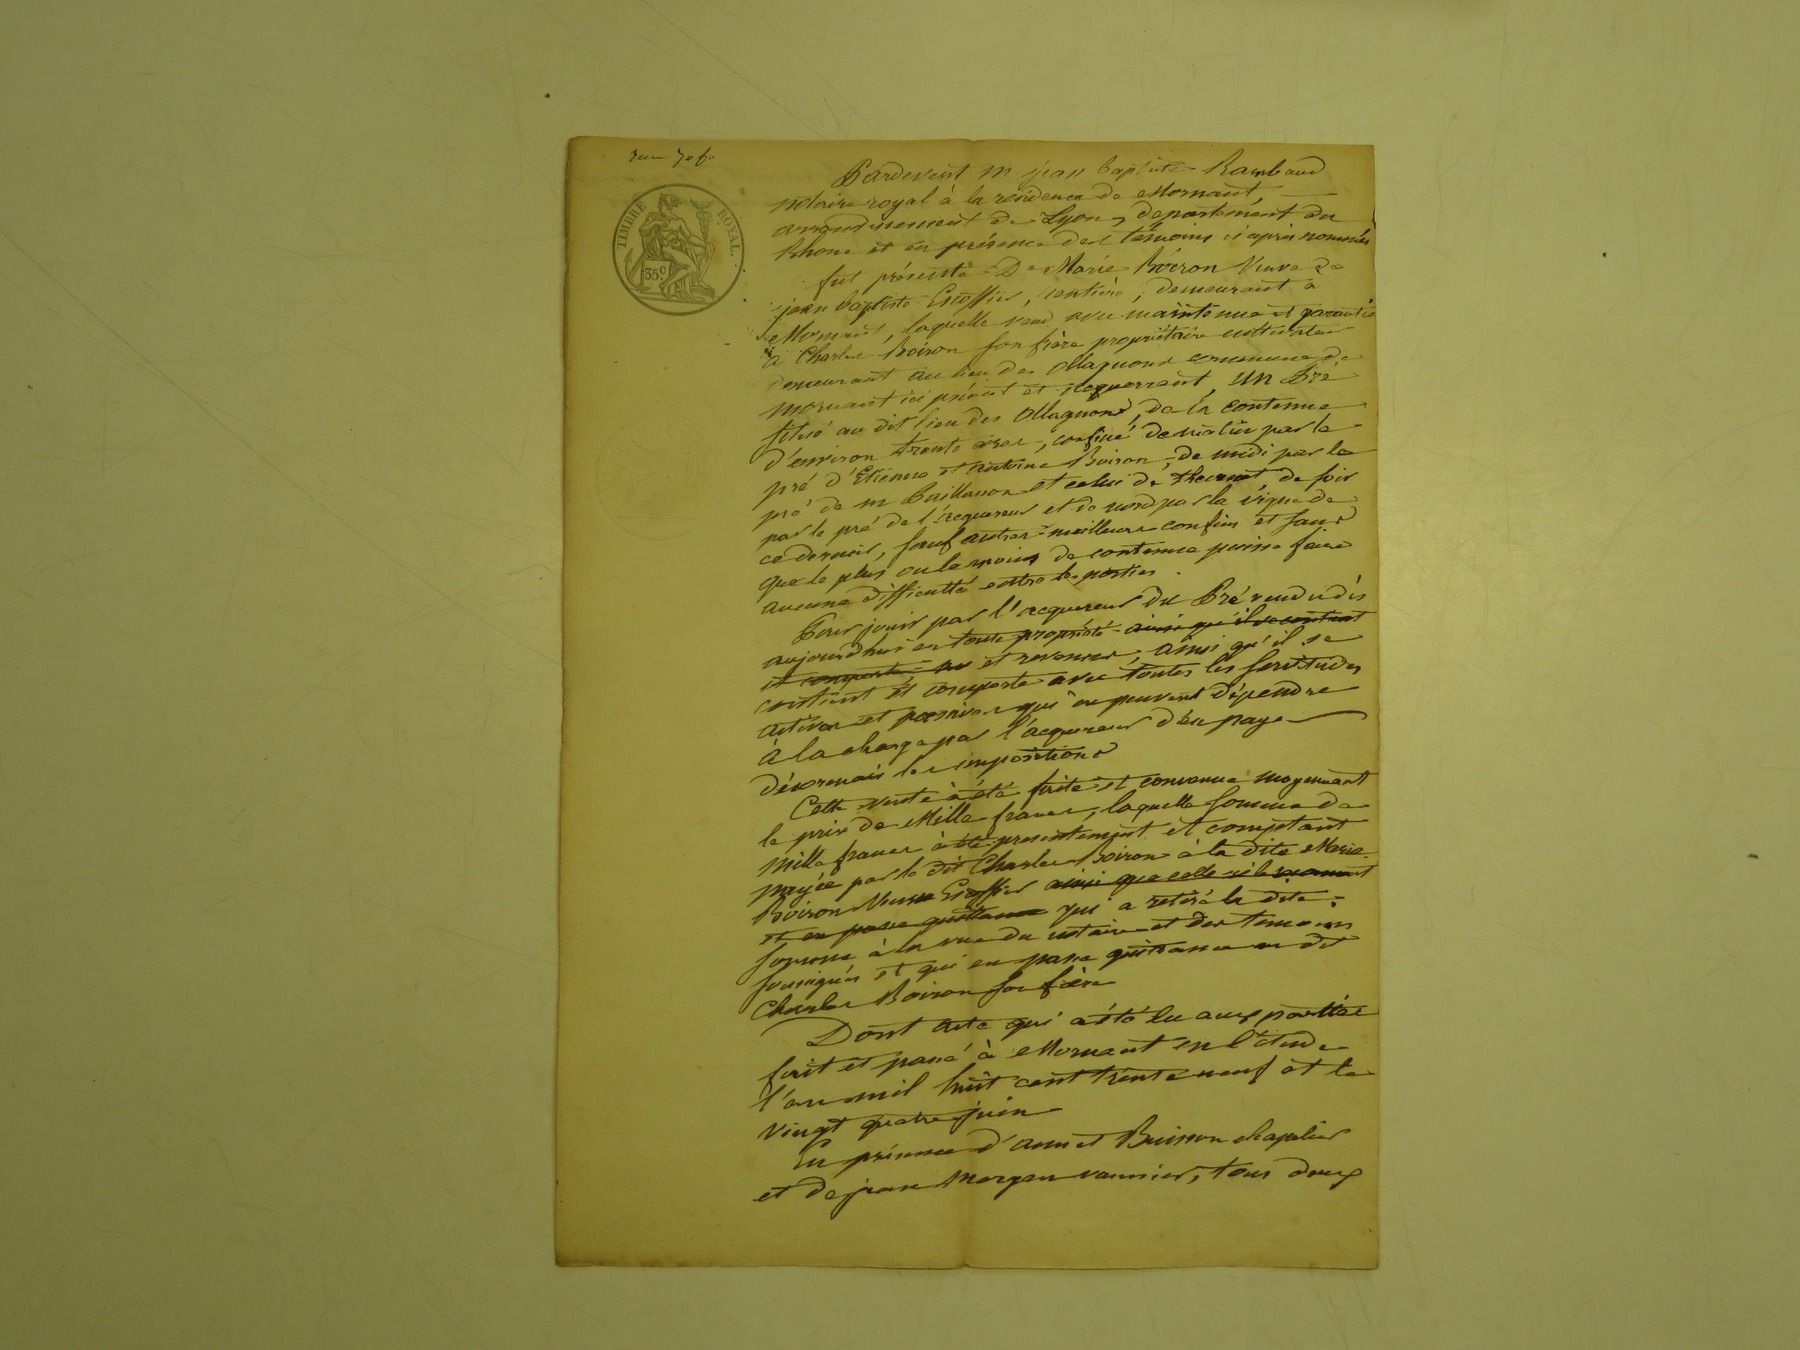 TIMBRE ROYAL.
35c
Pardevant m jean baptiste Rambaud
notaire royal à la résidence de Mornant,
arrondissement de Lyon, departement du
Rhone et en présence des témoins ci après nommés
fut présente De Marie Boiron Veuve de
jean baptiste Escoffier, rentière, demeurant à
Mornant, laquelle vend avec maintenue et garantie
à Charles Boiron son frère propriétaire cultivateur
demeurant au lieu des Ollagnons commune de
mornant ici présent et acquerrant, un Pré
situé au dit lieu des Ollagnons, de la contenue
d'environ trente ares, confiné de matin par le
pré d'Etienne et antoine Boiron, de midi par le
pré de m Paillasson et celui de de soir
par le pré de l'acquereur et de nord par la vigne de
ce dernier, sauf autres meilleurs confins et sans
que le plus ou le moins de contenue puisse faire
aucune difficulté entre les parties.
Pour jouir par l'acquereur du Pré vendu dès
aujourdhui en toute propriété ainsi qu'il se contient
et comporte, et revenus, ainsi qu'il se
contient et comporte avec toutes les servitudes
actives et passives qui en peuvent dépendre
à la charge par l'acquereur d'en payer
désormais les impositions
Cette vente à été faite et convenue moyennant
le prix de Mille francs, laquelle somme de
mille francs à été presentement et comptant
payée par le dit Charles Boiron à la dite Marie
Boiron Veuve Escoffier ainsi que celle ci le reconnait
et en passe quittance qui a retiré la dite
somme à la vue du notaire et des temoins
soussignés et qui en passe quittance au dit
Charles Boiron son frère
Dont acte qui a été lu aux parties
fait et passé à Mornant en l'étude
l'an mil huit cent trente neuf et le
vingt quatre juin
En présence d'annet Buisson chapelier
et de jean Morgan vannier, tous deux